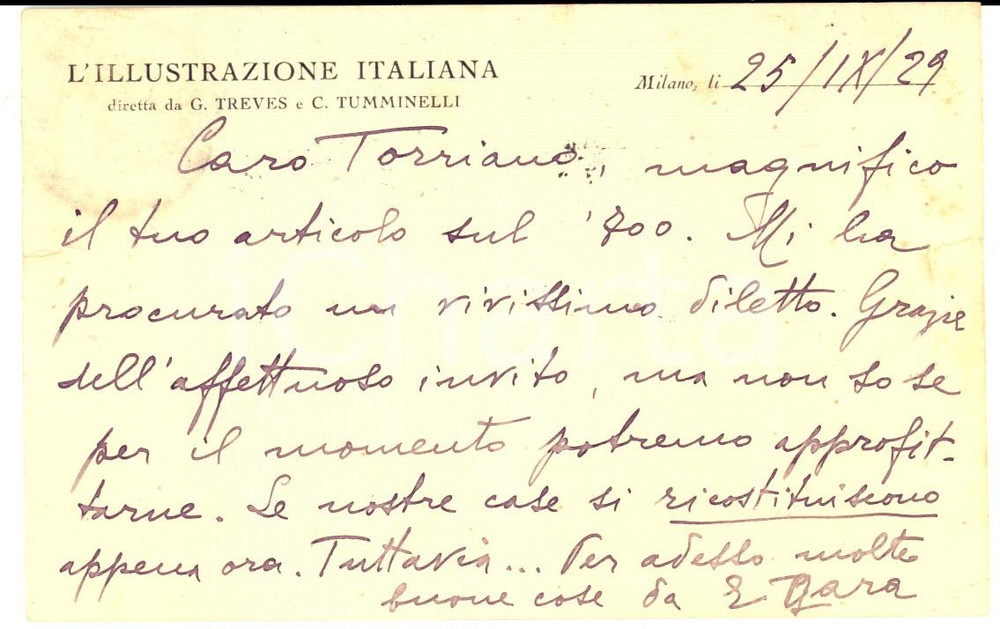 L'ILLUSTRAZIONE ITALIANA
diretta da G. TREVES e C. TUMMINELLI
Milano, li 25/IX/29
Caro Torriano, magnifico
il tuo articolo sul '800. Mi ha
procurato un vivissimo diletto. Grazie
dell'affettuoso invito, ma non so se
per il momento potremo approfit-
tarne. Le nostre case si ricostituiscono
appena ora. Tuttavia... Per adesso molte
buone cose da E Gara